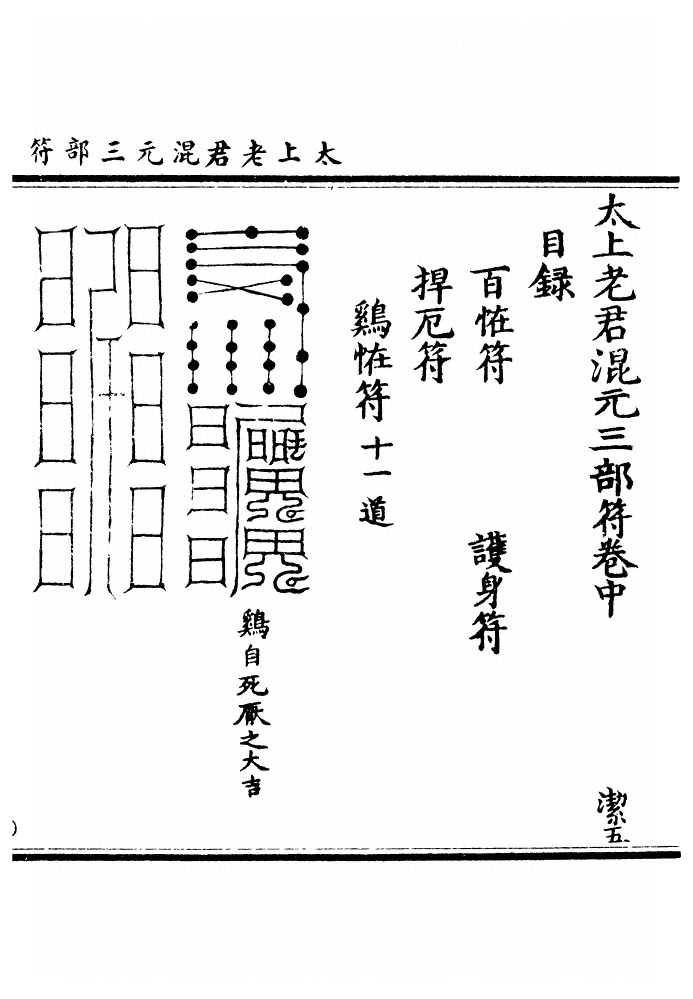 太上老君混元三部符
太上老君混元三部符卷中
潔五
目録
百恠符
護身符
捍厄符
鷄恠符十一道
鷄自死厭之大吉